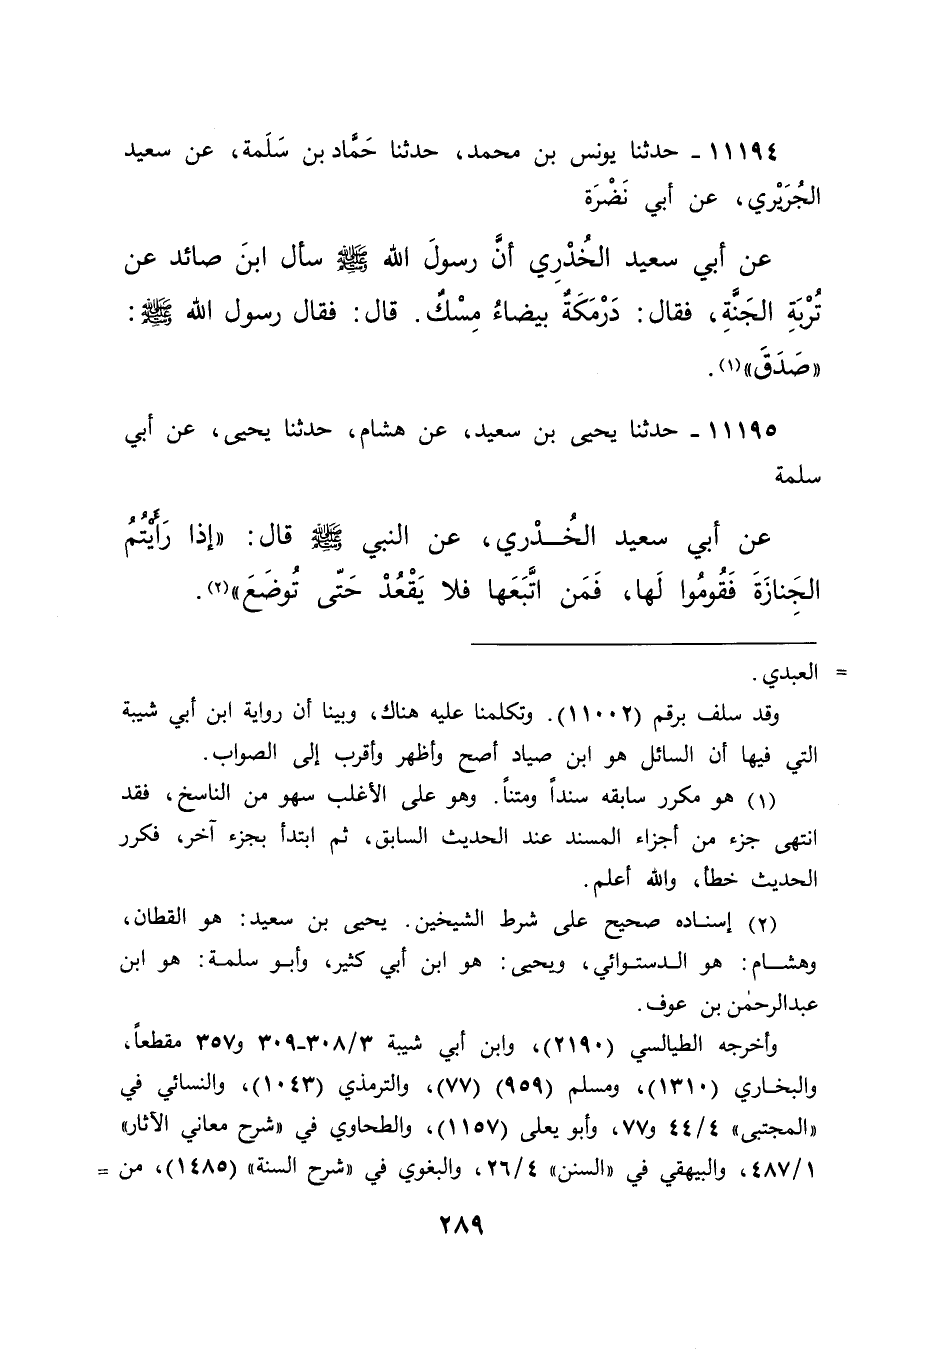 ١١١٩٤ - حدثنا يونس بن محمد، حدثنا حَمَّاد بن سَلَمة، عن سعيد
الجُرَيْري، عن أبي نَضْرَة
عن أبي سعيد الخُدْرِي أنَّ رسولَ الله ﷺ سأل ابنَ صائد عن
تُرْبَةِ الجَنَّةِ، فقال: دَرْمَكَةٌ بيضاءُ مِسْكٌ. قال: فقال رسول الله ﷺ:
«صَدَقَ»(١).
١١١٩٥ - حدثنا يحيى بن سعيد، عن هشام، حدثنا يحيى، عن أبي
سلمة
عن أبي سعيد الخُدْري، عن النبي ﷺ قال: «إذا رَأَيْتُمُ
الجَنازَةَ فَقُومُوا لَها، فَمَن اتَّبَعَها فلا يَقْعُدْ حَتّى تُوضَعَ»(٢).
= العبدي.
وقد سلف برقم (١١٠٠٢). وتكلمنا عليه هناك، وبينا أن رواية ابن أبي شيبة
التي فيها أن السائل هو ابن صياد أصح وأظهر وأقرب إلى الصواب.
(١) هو مكرر سابقه سنداً ومتناً. وهو على الأغلب سهو من الناسخ، فقد
انتهى جزء من أجزاء المسند عند الحديث السابق، ثم ابتدأ بجزء آخر، فكرر
الحديث خطأ، والله أعلم.
(٢) إسناده صحيح على شرط الشيخين. يحيى بن سعيد: هو القطان،
وهشام: هو الدستوائي، ويحيى: هو ابن أبي كثير، وأبو سلمة: هو ابن
عبدالرحمٰن بن عوف.
وأخرجه الطيالسي (٢١٩٠)، وابن أبي شيبة ٣٠٨/٣-٣٠٩ و٣٥٧ مقطعاً،
والبخاري (١٣١٠)، ومسلم (٩٥٩) (٧٧)، والترمذي (١٠٤٣)، والنسائي في
«المجتبى» ٤٤/٤ و٧٧، وأبو يعلى (١١٥٧)، والطحاوي في «شرح معاني الآثار»
٤٨٧/١، والبيهقي في «السنن» ٢٦/٤، والبغوي في «شرح السنة» (١٤٨٥)، من =
٢٨٩